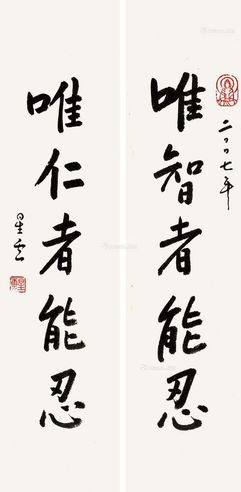 二〇〇七年
唯智者能忍
唯仁者能忍
星云